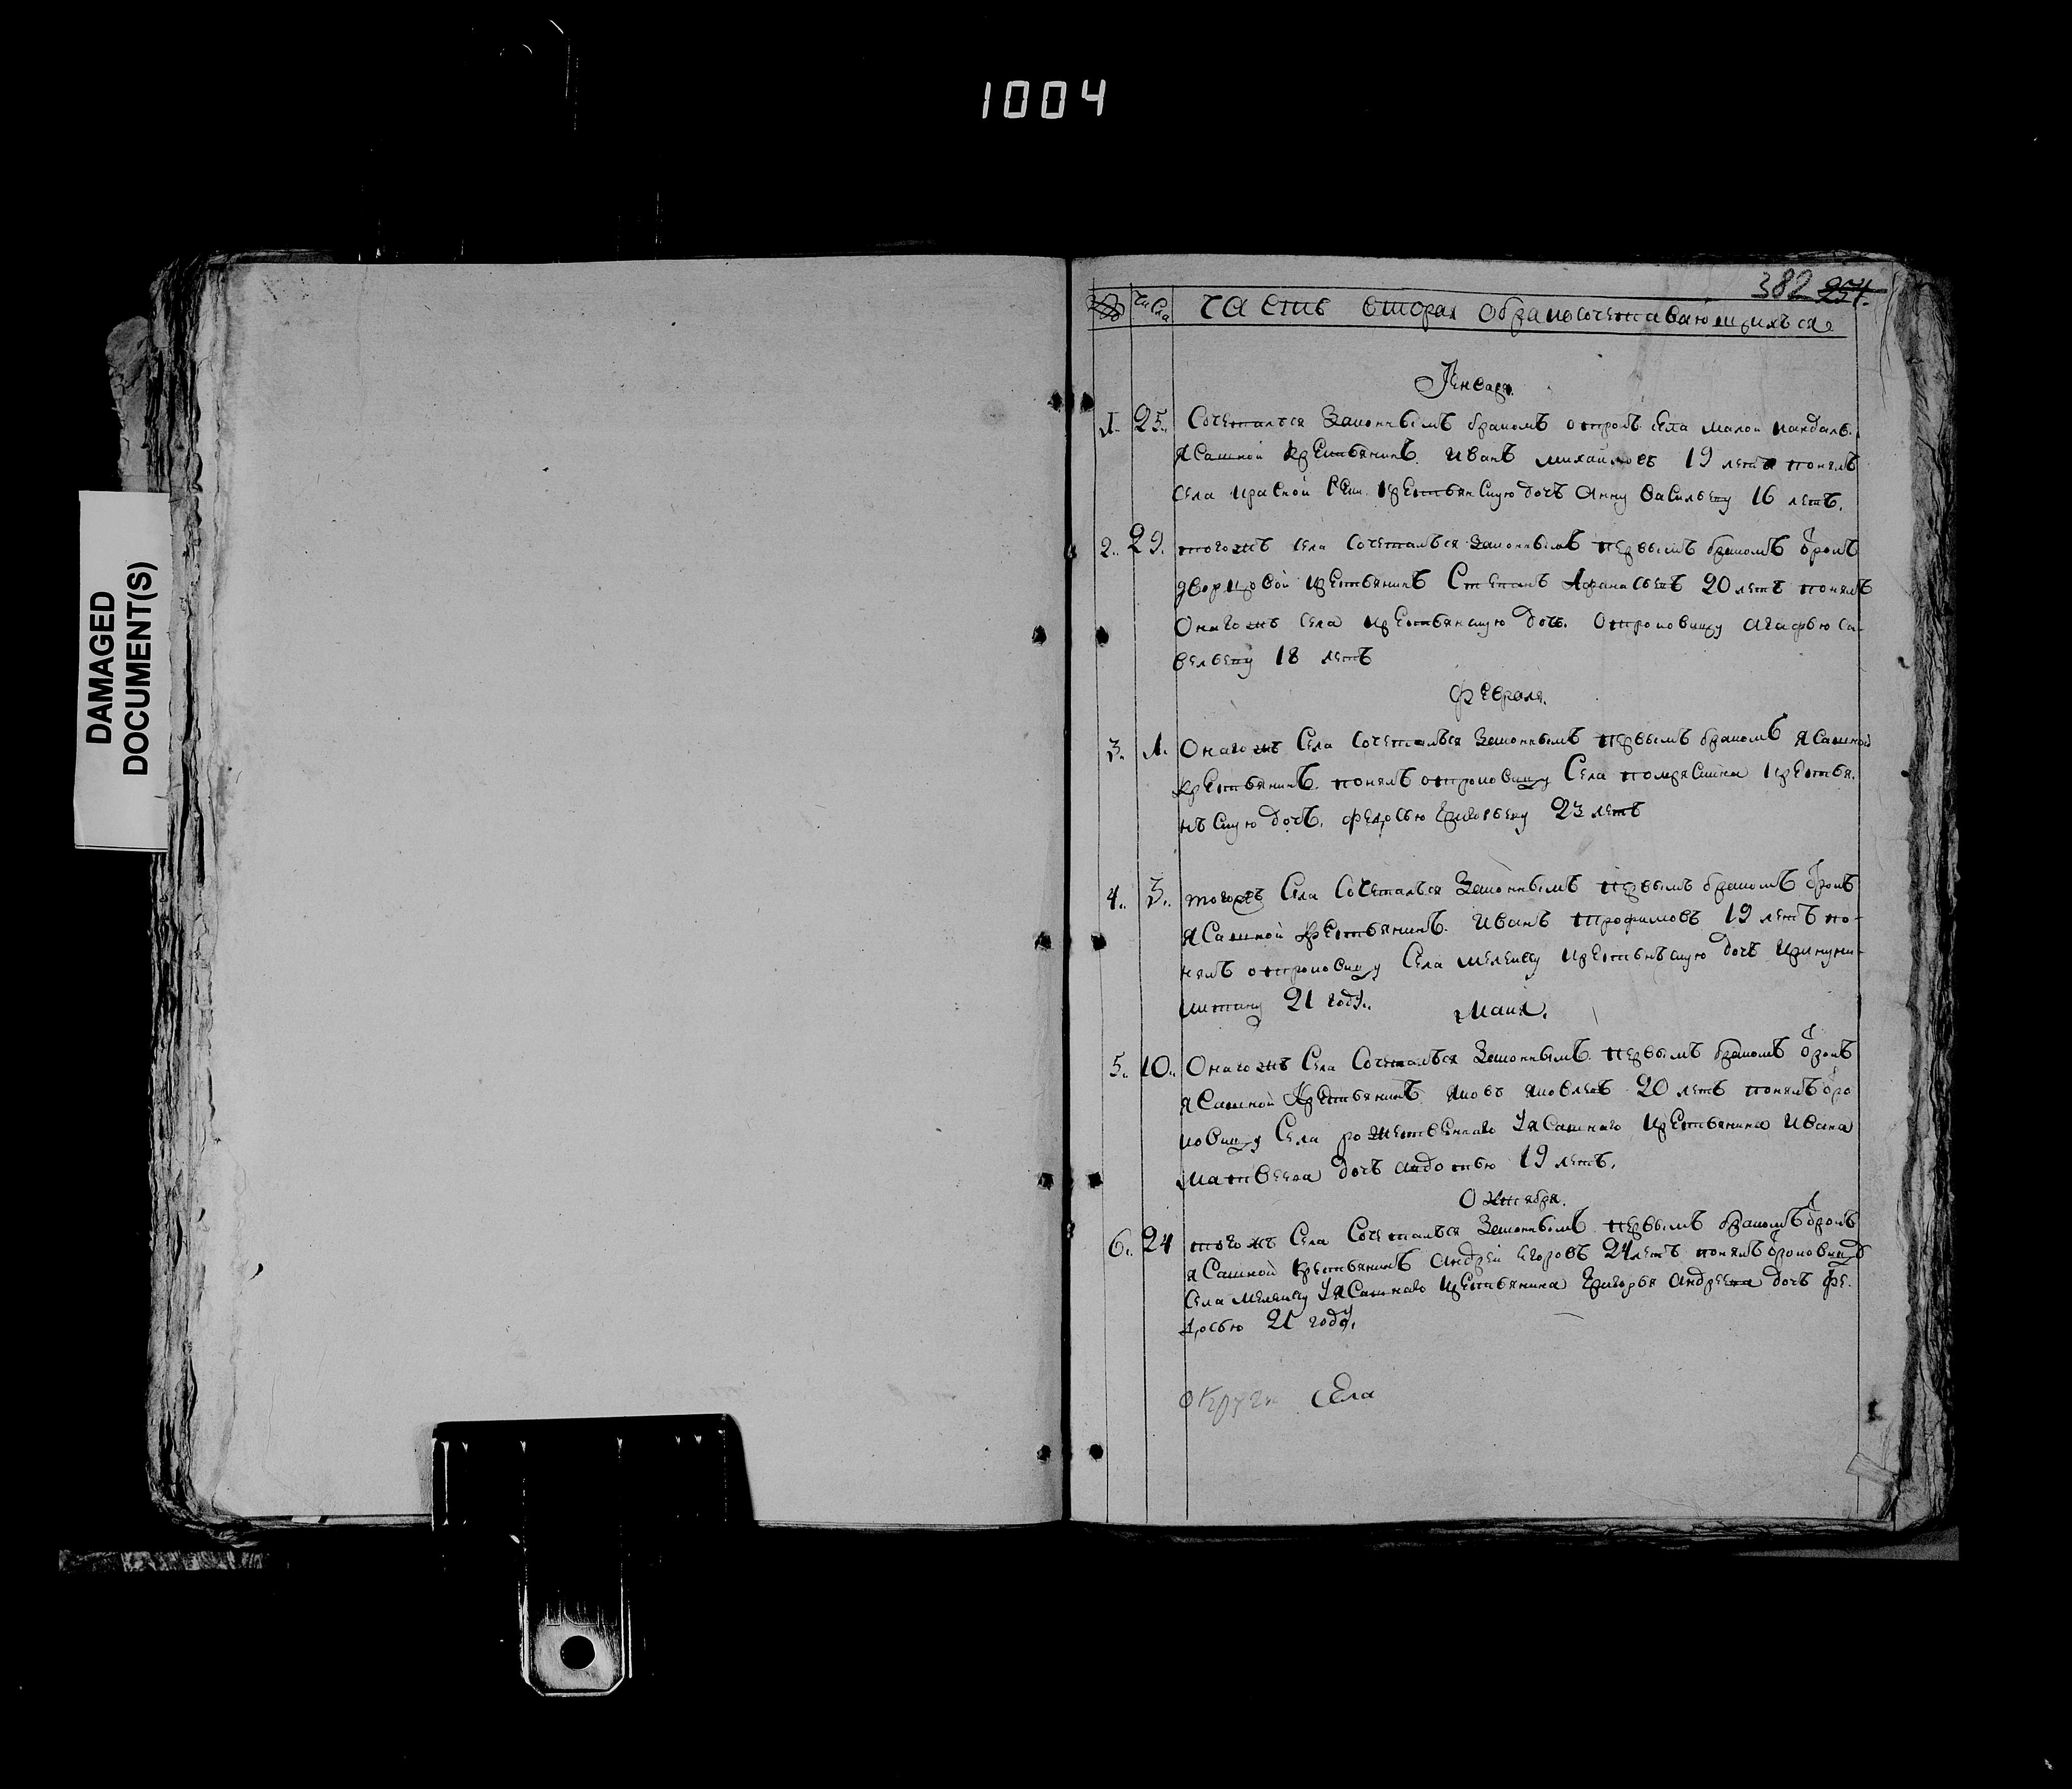 1004
DAMAGED
DOCUMENT(S)
382 254.
числа часть вторая о бракосочетавающихъся
Генваря.
1. 25. Сочетался законнымъ бракомъ отрокъ села малой
ясашной крестьянинъ Иванъ михайловъ 19 летъ понялъ
села красной крестьянскую дочь Анну васильеву 16 летъ.
2. 29. тогожъ села сочетался законнымъ первымъ бракомъ отрокъ
дворцовой крестьянинъ Степанъ Афанасьевъ 20 летъ понялъ
Онагожъ села крестьянскую дочь отроковицу агафью са-
вельеву 18 летъ
февраля.
3. 1. Онагожъ Села сочетался законнымъ первымъ бракомъ ясашной
крестьянинъ понялъ отроковицу Села крестья-
нъскую дочь федосью григорьеву 23 летъ
4. 3. тогожъ Села Сочеталься законнымъ первымъ бракомъ отрокъ
ясашной крестьянинъ Иванъ трофимовъ 19 летъ по-
нялъ отроковицу Села крестьянъскую дочь ирину ни-
китину 21 году.
Маия.
5. 10. Онагожъ Села Сочетался законнымъ первымъ бракомъ отрокъ
ясашной крестьянинъ яковъ яковлевъ 20 летъ понялъ отро
ковицу Села рожественнаго уясашнаго крестьянина Ивана
матвеева дочь авдотью 19 летъ.
Октября.
6. 24 тогожъ Села Сочеталься законнымъ первымъ бракомъ отрокъ
ясашной крестьянинъ Андрей егоровъ 24 летъ понялъ отроковицу
Села уясашнаго крестьянина григорья андреева дочь фе-
досью 21 году.
Села